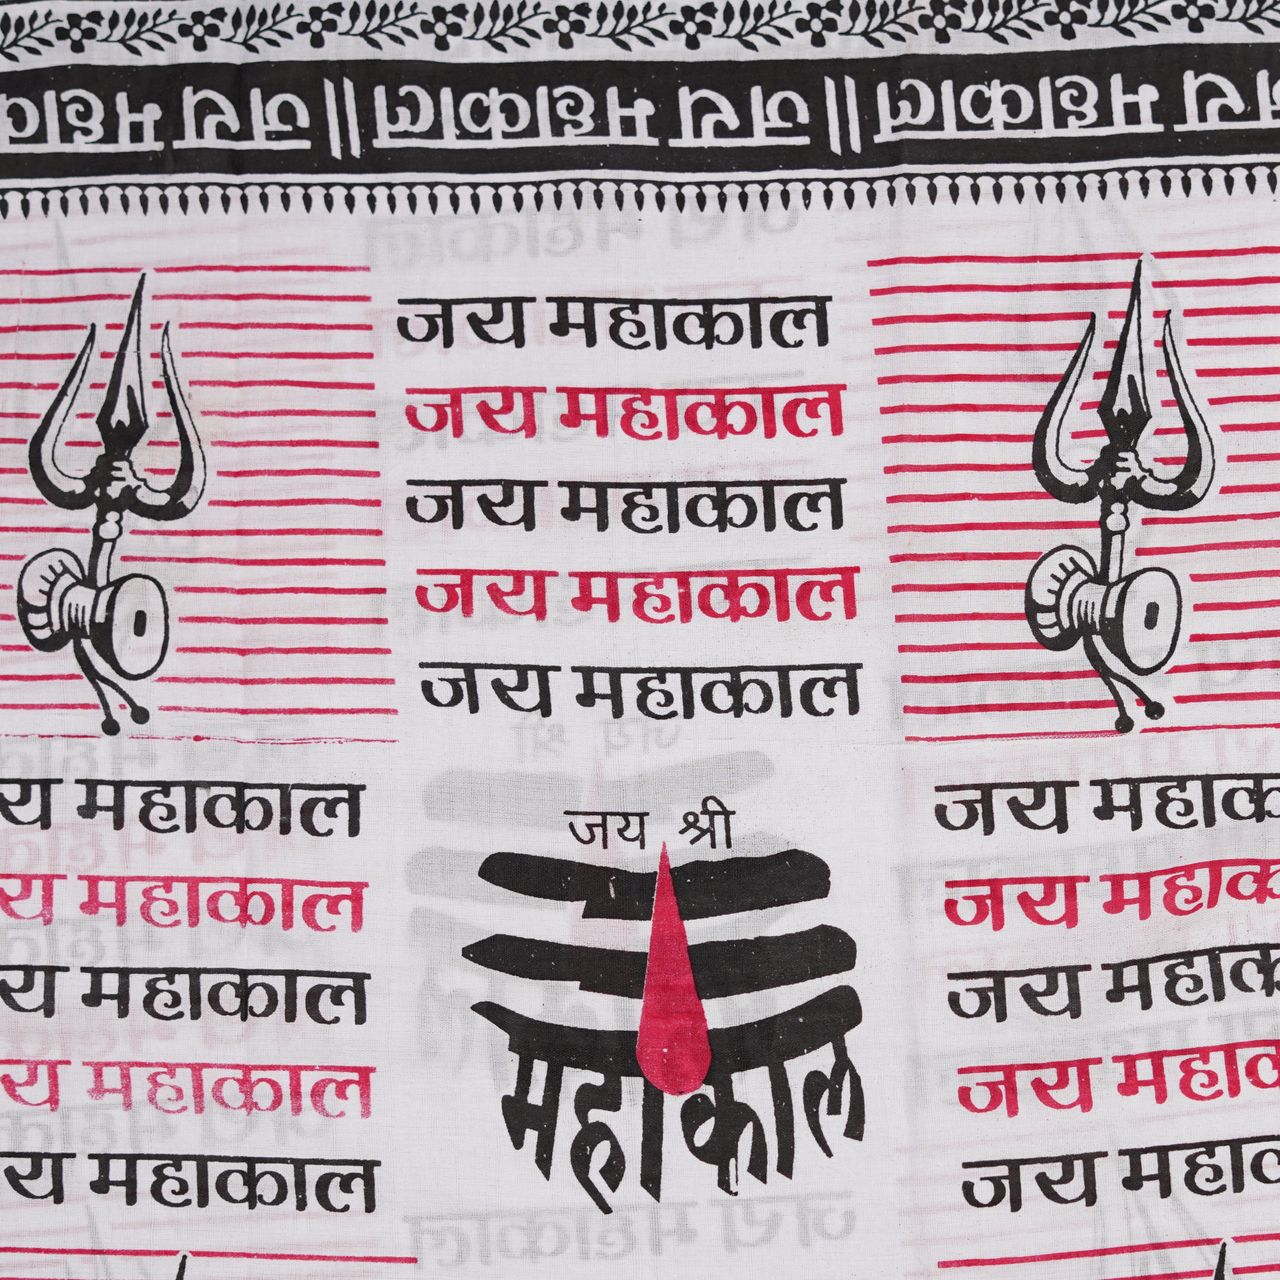 जय महाकाल || जय महाकाल || जय
जय महाकाल
जय महाकाल
जय महाकाल
जय महाकाल
जय महाकाल
जय श्री
महाकाल
य महाकाल
य महाकाल
य महाकाल
य महाकाल
य महाकाल
जय महाक
जय महाक
जय महाक
जय महाक
जय महाक